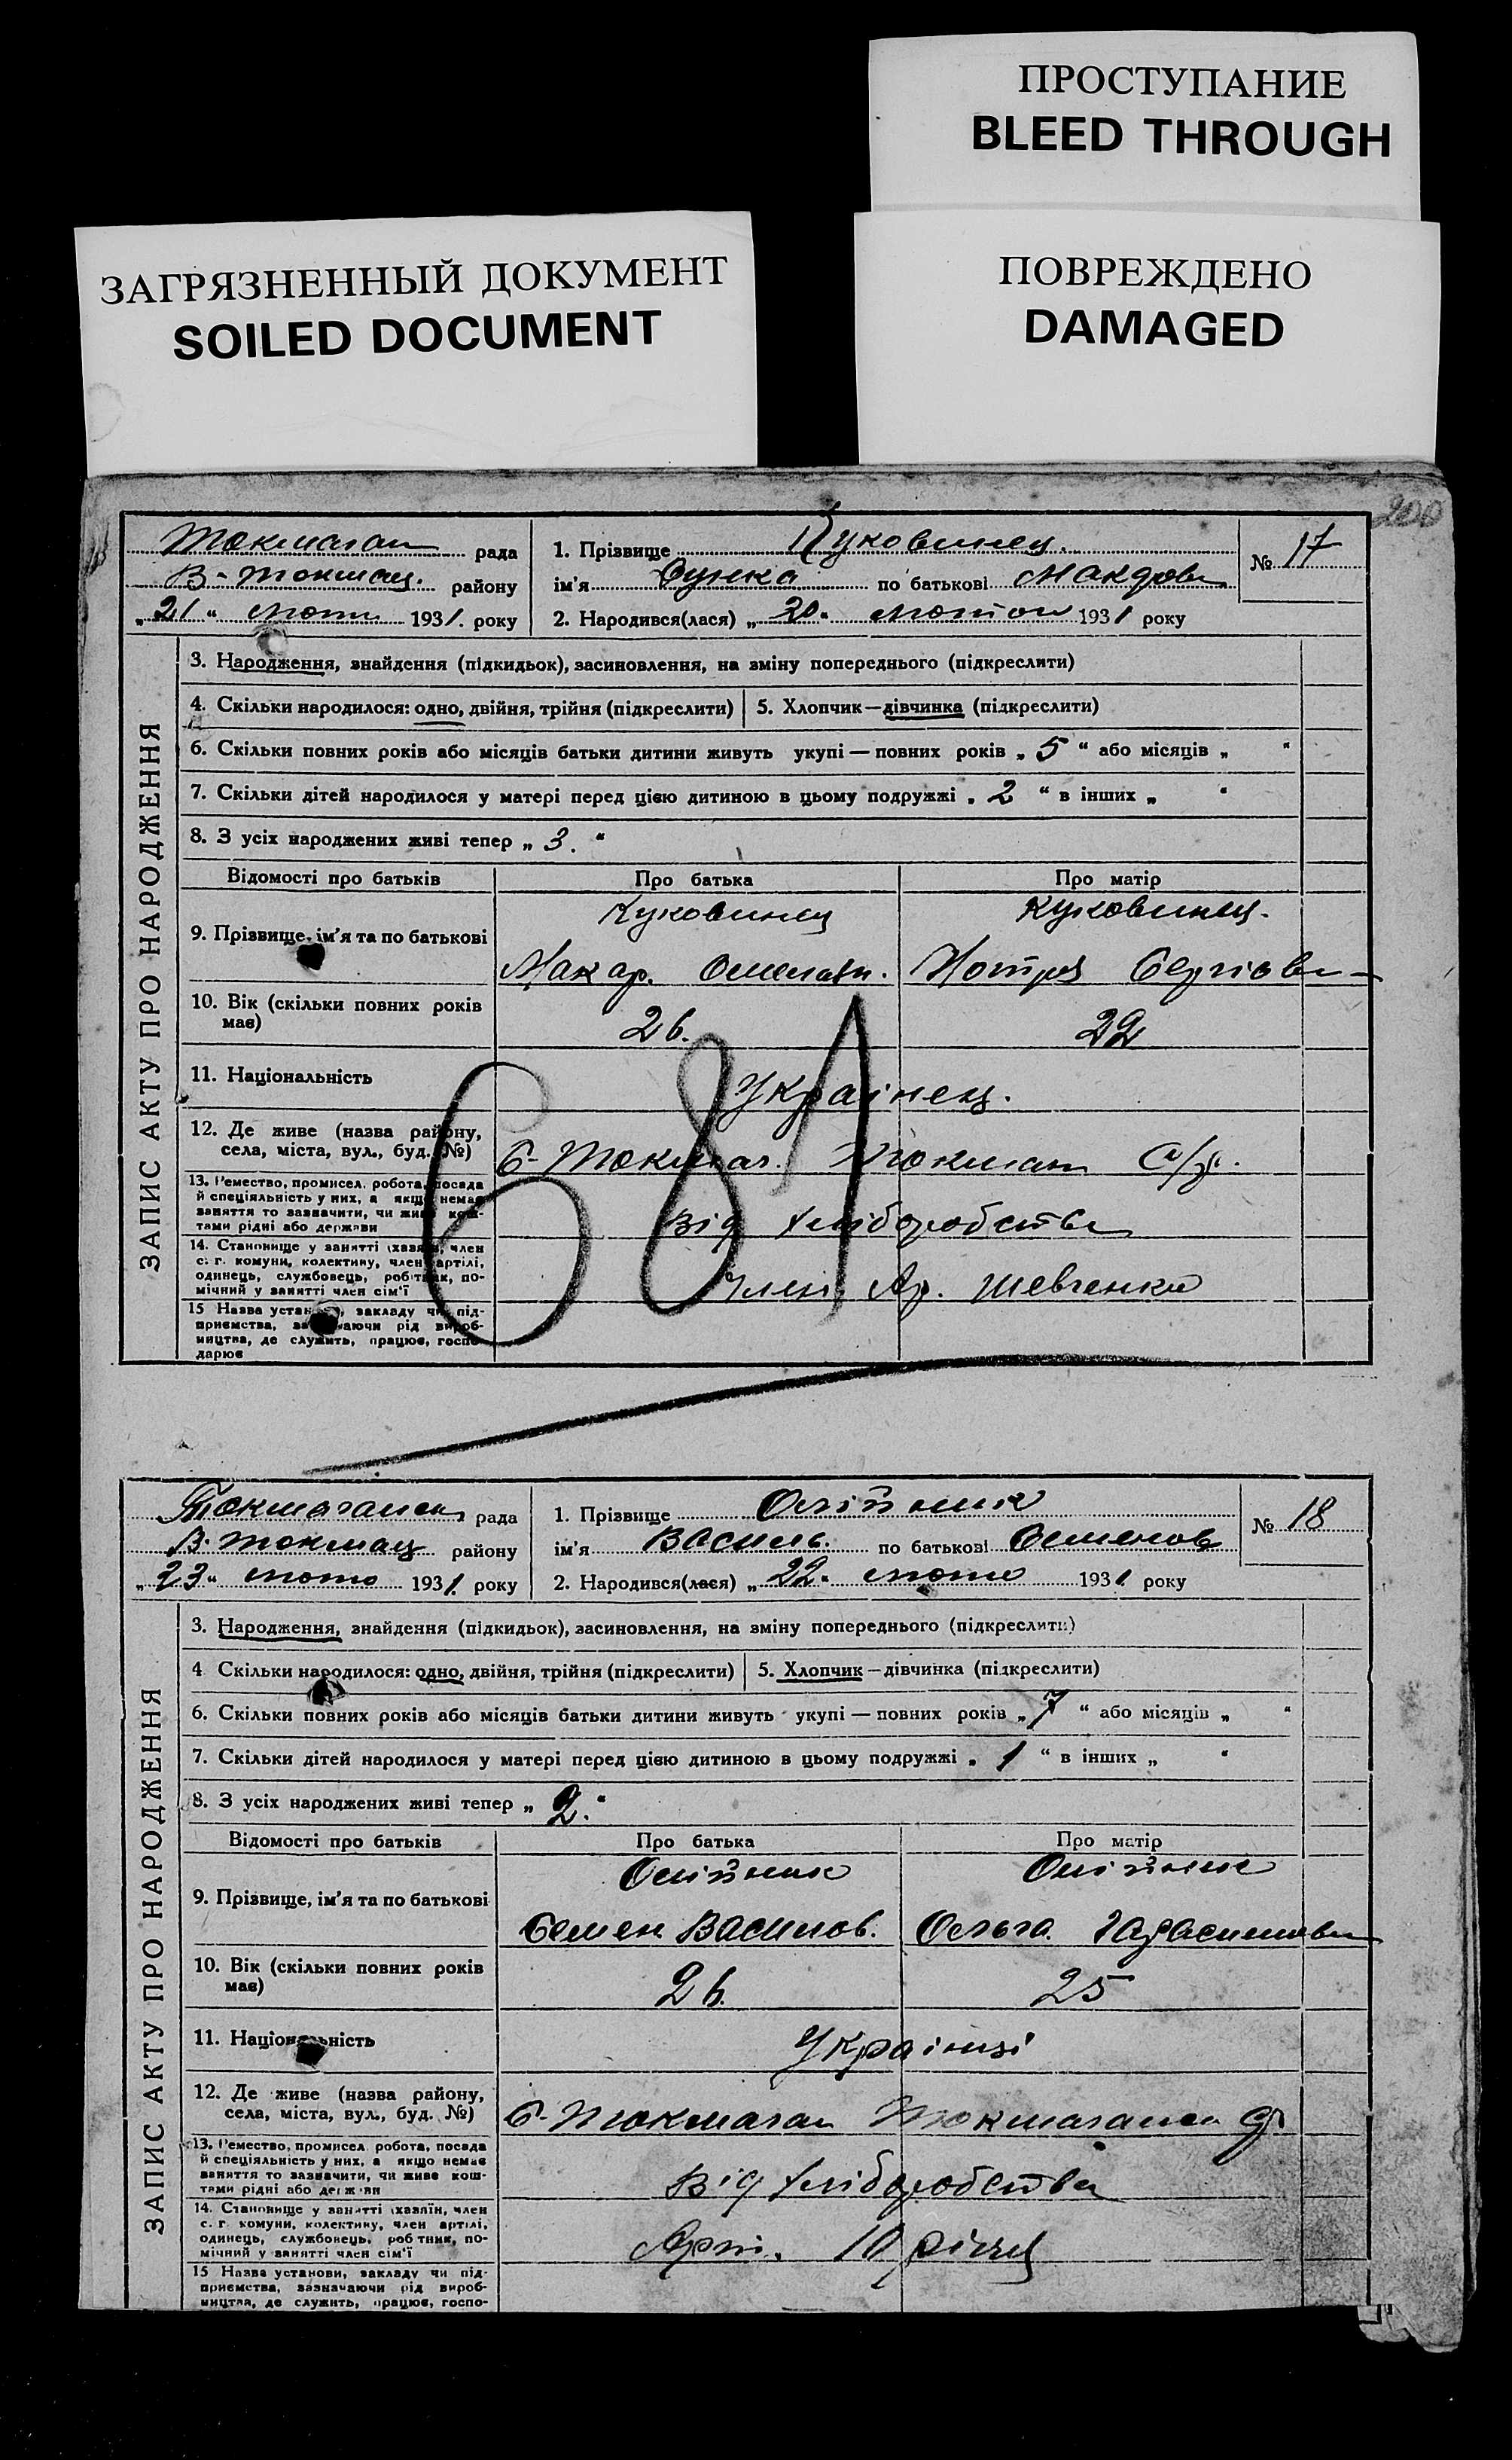 ПРОСТУПАНИЕ
BLEED THROUGH
ЗАГРЯЗНЕННЫЙ ДОКУМЕНТ
SOILED DOCUMENT
ПОВРЕЖДЕНО
DAMAGED
200
рада
В-Токмац. району
„21“ 1931. року
1. Прізвище Куковинец.
ім'я по батькові
2. Народився(лася) „20“ 1931 року
№ 17
ЗАПИС АКТУ ПРО НАРОДЖЕННЯ
3. Народження, знайдення (підкидьок), засиновлення, на зміну попереднього (підкреслити)
4. Скільки народилося: одно, двійня, трійня (підкреслити) 5. Хлопчик—дівчинка (підкреслити)
6. Скільки повних років або місяців батьки дитини живуть укупі — повних років „5“ або місяців „ “
7. Скільки дітей народилося у матері перед цією дитиною в цьому подружжі „2“ в інших „ “
8. З усіх народжених живі тепер „3.“
Відомості про батьків Про батька Про матір
9. Прізвище, ім'я та по батькові
Куковинец Куковинец.
Макар. Омелян.
10. Вік (скільки повних років має)
26. 22
11. Національність
Украінец.
12. Де живе (назва району,
села, міста, вул., буд. №)
13. Ремество, промисел, робота, посада
й спеціяльність у них, а якщо немає
заняття то зазначити, чи живе кош-
тами рідні або держави
Від хліборобства
14. Становище у занятті (хазяїн, член
с. г. комуни, колективу, член артілі,
одинець, службовець, робітник, по-
мічний у занятті член сім'ї
Член Ар. Шевченка
15 Назва установи, закладу чи під-
приємства, зазначаючи рід вироб-
ництва, де служить, працює, госпо-
дарює
681
рада
В. Токмац району
„23“ 1931. року
1. Прізвище Олійник
ім'я Василь. по батькові Семенов
2. Народився(лася) „22“ 1931. року
№ 18
ЗАПИС АКТУ ПРО НАРОДЖЕННЯ
3. Народження, знайдення (підкидьок), засиновлення, на зміну попереднього (підкреслити)
4 Скільки народилося: одно, двійня, трійня (підкреслити) 5. Хлопчик—дівчинка (підкреслити)
6. Скільки повних років або місяців батьки дитини живуть укупі — повних років „7“ або місяців „ “
7. Скільки дітей народилося у матері перед цією дитиною в цьому подружжі „1“ в інших „ “
8. З усіх народжених живі тепер „2.“
Відомості про батьків Про батька Про матір
9. Прізвище, ім'я та по батькові
Олійник Олійник
Семен Василов. Ольга Гарасимовн
10. Вік (скільки повних років має)
26. 25
11. Національність
Украінці
12. Де живе (назва району,
села, міста, вул., буд. №)
13. Ремество, промисел, робота, посада
й спеціяльність у них, а якщо немає
заняття то зазначити, чи живе кош-
тами рідні або держави
Від хліборобства
14. Становище у занятті (хазяїн, член
с. г. комуни, колективу, член артілі,
одинець, службовець, робітник, по-
мічний у занятті член сім'ї
Арт. 10 річчя
15 Назва установи, закладу чи під-
приємства, зазначаючи рід вироб-
ництва, де служить, працює, госпо-